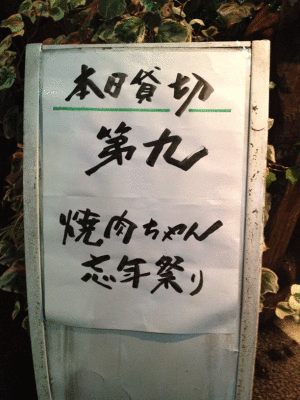 本日貸切
第九
焼肉ちゃん
忘年祭り